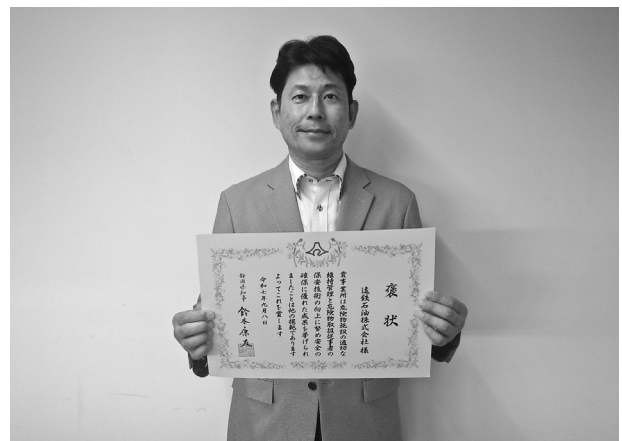 褒状
遠鉄石油株式会社様
貴事業所は危険物施設の適切な
維持管理と危険物取扱従事者の
保安技術の向上に努め安全の
確保に優れた成果を挙げられ
ましたことは他の模範であります
よってこれを賞します
令和七年九月八日
静岡県知事 鈴木康友